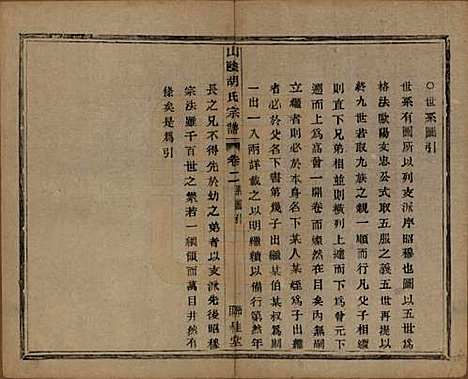 ○世系圖引
世系有圖所以列支派序昭穆也圖以五世再提以
格法歐陽文忠公式取五服之義五世再提以
終九世若取九族之親一順而行凡父子相承
直下兄弟相並則橫列上通而下為曾元下
遡而上為高曾一開卷而燦然在目矣內無嗣
立繼者則於本身名下某人某姪子出繼有嗣
者必於父名下書第幾子出繼某伯某叔為嗣
一出一入兩詳載之以明繼續以便考第然年
山陰胡氏宗譜
卷二
系圖引
聯桂堂
長之兄不得先於幼之弟者以其先後昭穆
宗法雖千百世之繁若一綱領而萬目井然有
條矣是為引